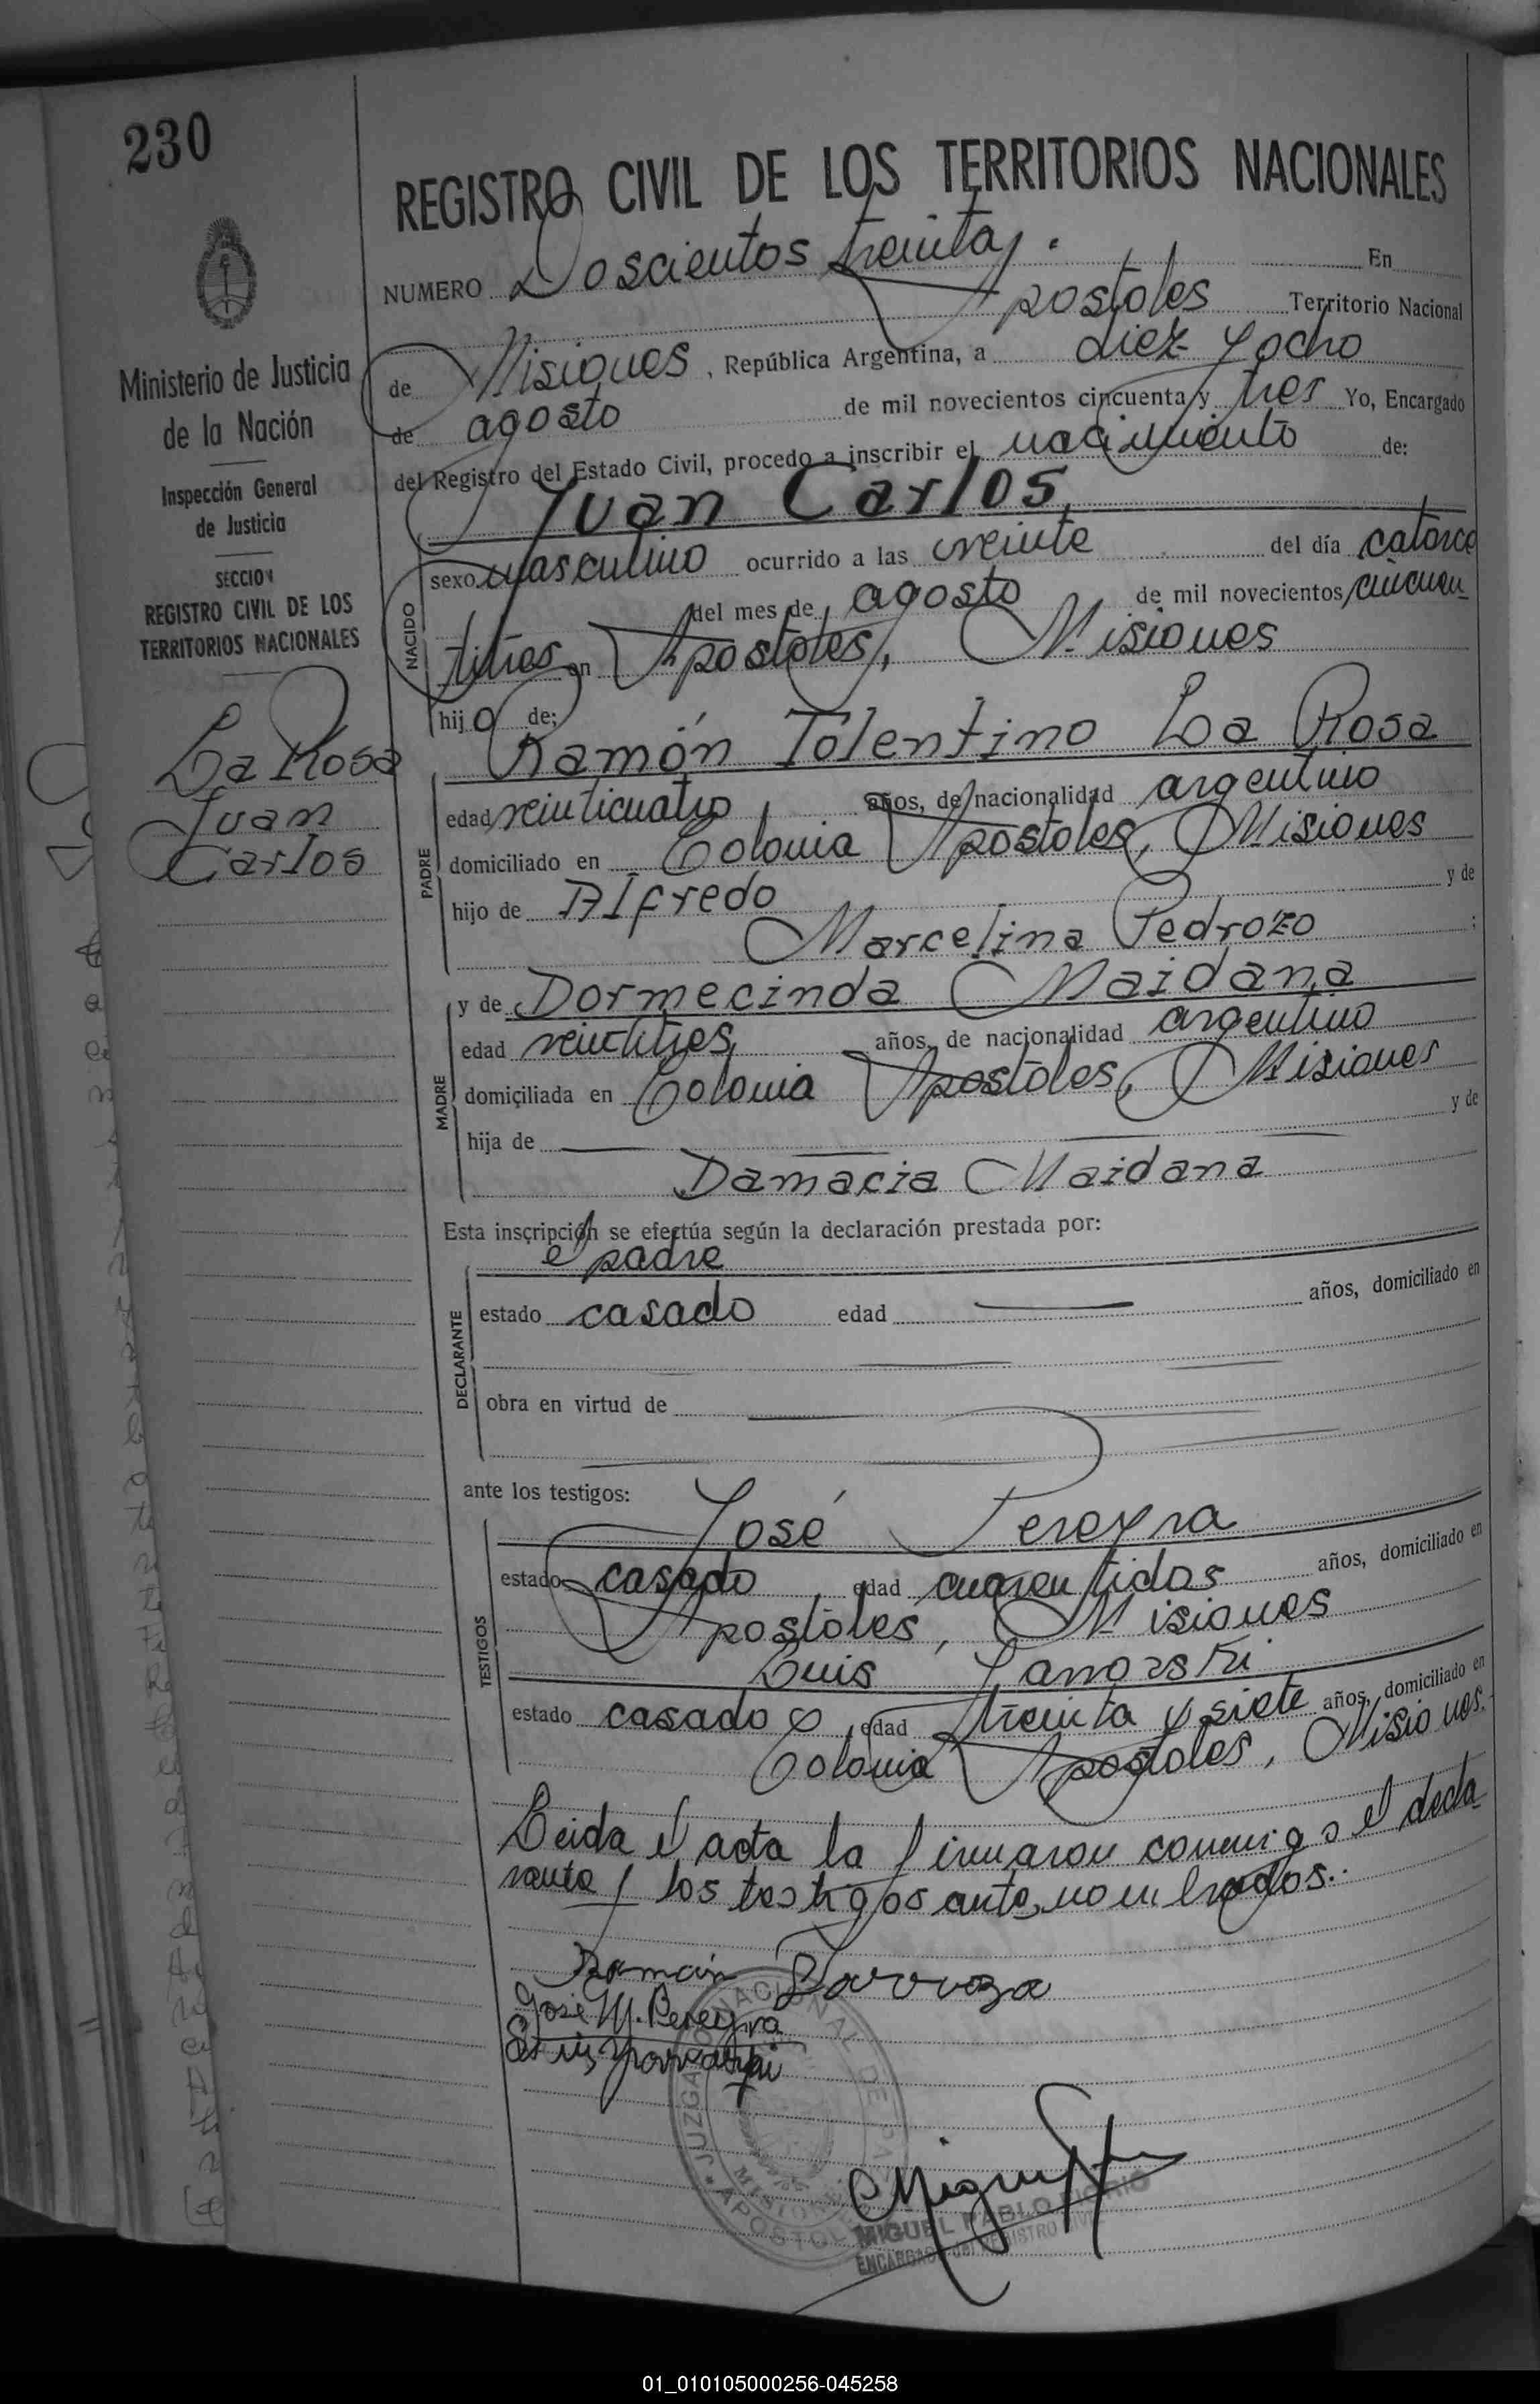 230
REGISTRO CIVIL DE LOS TERRITORIOS NACIONALES
NUMERO Doscientos treinta. En
Apostoles Territorio Nacional
de Misiones, República Argentina, a diez y ocho
de agosto de mil novecientos cincuenta y tres Yo, Encargado
del Registro del Estado Civil, procedo a inscribir el nacimiento de:
Juan Carlos,
sexo masculino ocurrido a las veinte del día catorce
del mes de agosto de mil novecientos cincuen
titres en Apostoles, Misiones
NACIDO
hijo de:
Ramón Tolentino La Rosa
edad veinticuatro años, de nacionalidad argentino
domiciliado en Colonia Apostoles, Misiones
hijo de Alfredo y de
Marcelina Pedrozo ;
PADRE
y de Dormecinda Maidana
edad veintitres años, de nacionalidad argentino
domiciliada en Colonia Apostoles, Misiones
hija de y de
Damacia Maidana
MADRE
Esta inscripción se efectúa según la declaración prestada por:
el padre
estado casado edad años, domiciliado en
obra en virtud de
DECLARANTE
ante los testigos:
José Pereyra
estado casado edad cuarentidos años, domiciliado en
Apostoles, Misiones
Luis
estado casado edad treinta y siete años, domiciliado en
Colonia Apostoles, Misiones.
TESTIGOS
Leida el acta la firmaron conmigo el decla
rante y los testigos antes nombrados.
Ramón Larroza
José M. Pereyra
Luis
JUZGADO NACIONAL DE PAZ
APOSTOLES
MISIONES
MIGUEL PABLO
ENCARGADO DEL REGISTRO CIVIL
Ministerio de Justicia
de la Nación
Inspección General
de Justicia
SECCION
REGISTRO CIVIL DE LOS
TERRITORIOS NACIONALES
La Rosa
Juan
Carlos
01_010105000256-045258